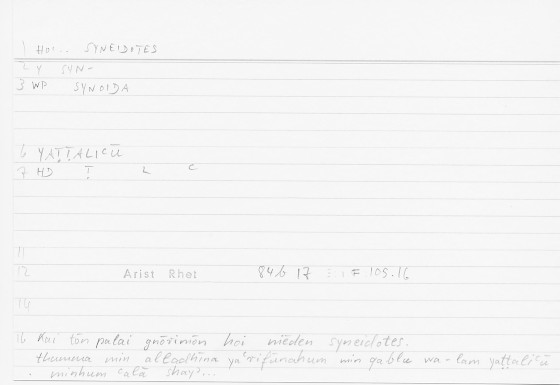 1 HOI... SYNEIDOTES
2 Y SYN-
3 WP SYNOIDA
6 YAṬṬALICŪ
7 HD Ṭ L C
11
12 Arist Rhet 84b 17 105.16
14
16 Kai tōn palai gnōrimōn hoi mēden syneidotes.
thumma min alladhīna yaʿrifūnahum min qablu wa-lam yaṭṭaliʿū
minhum ʿalā shayʾ...